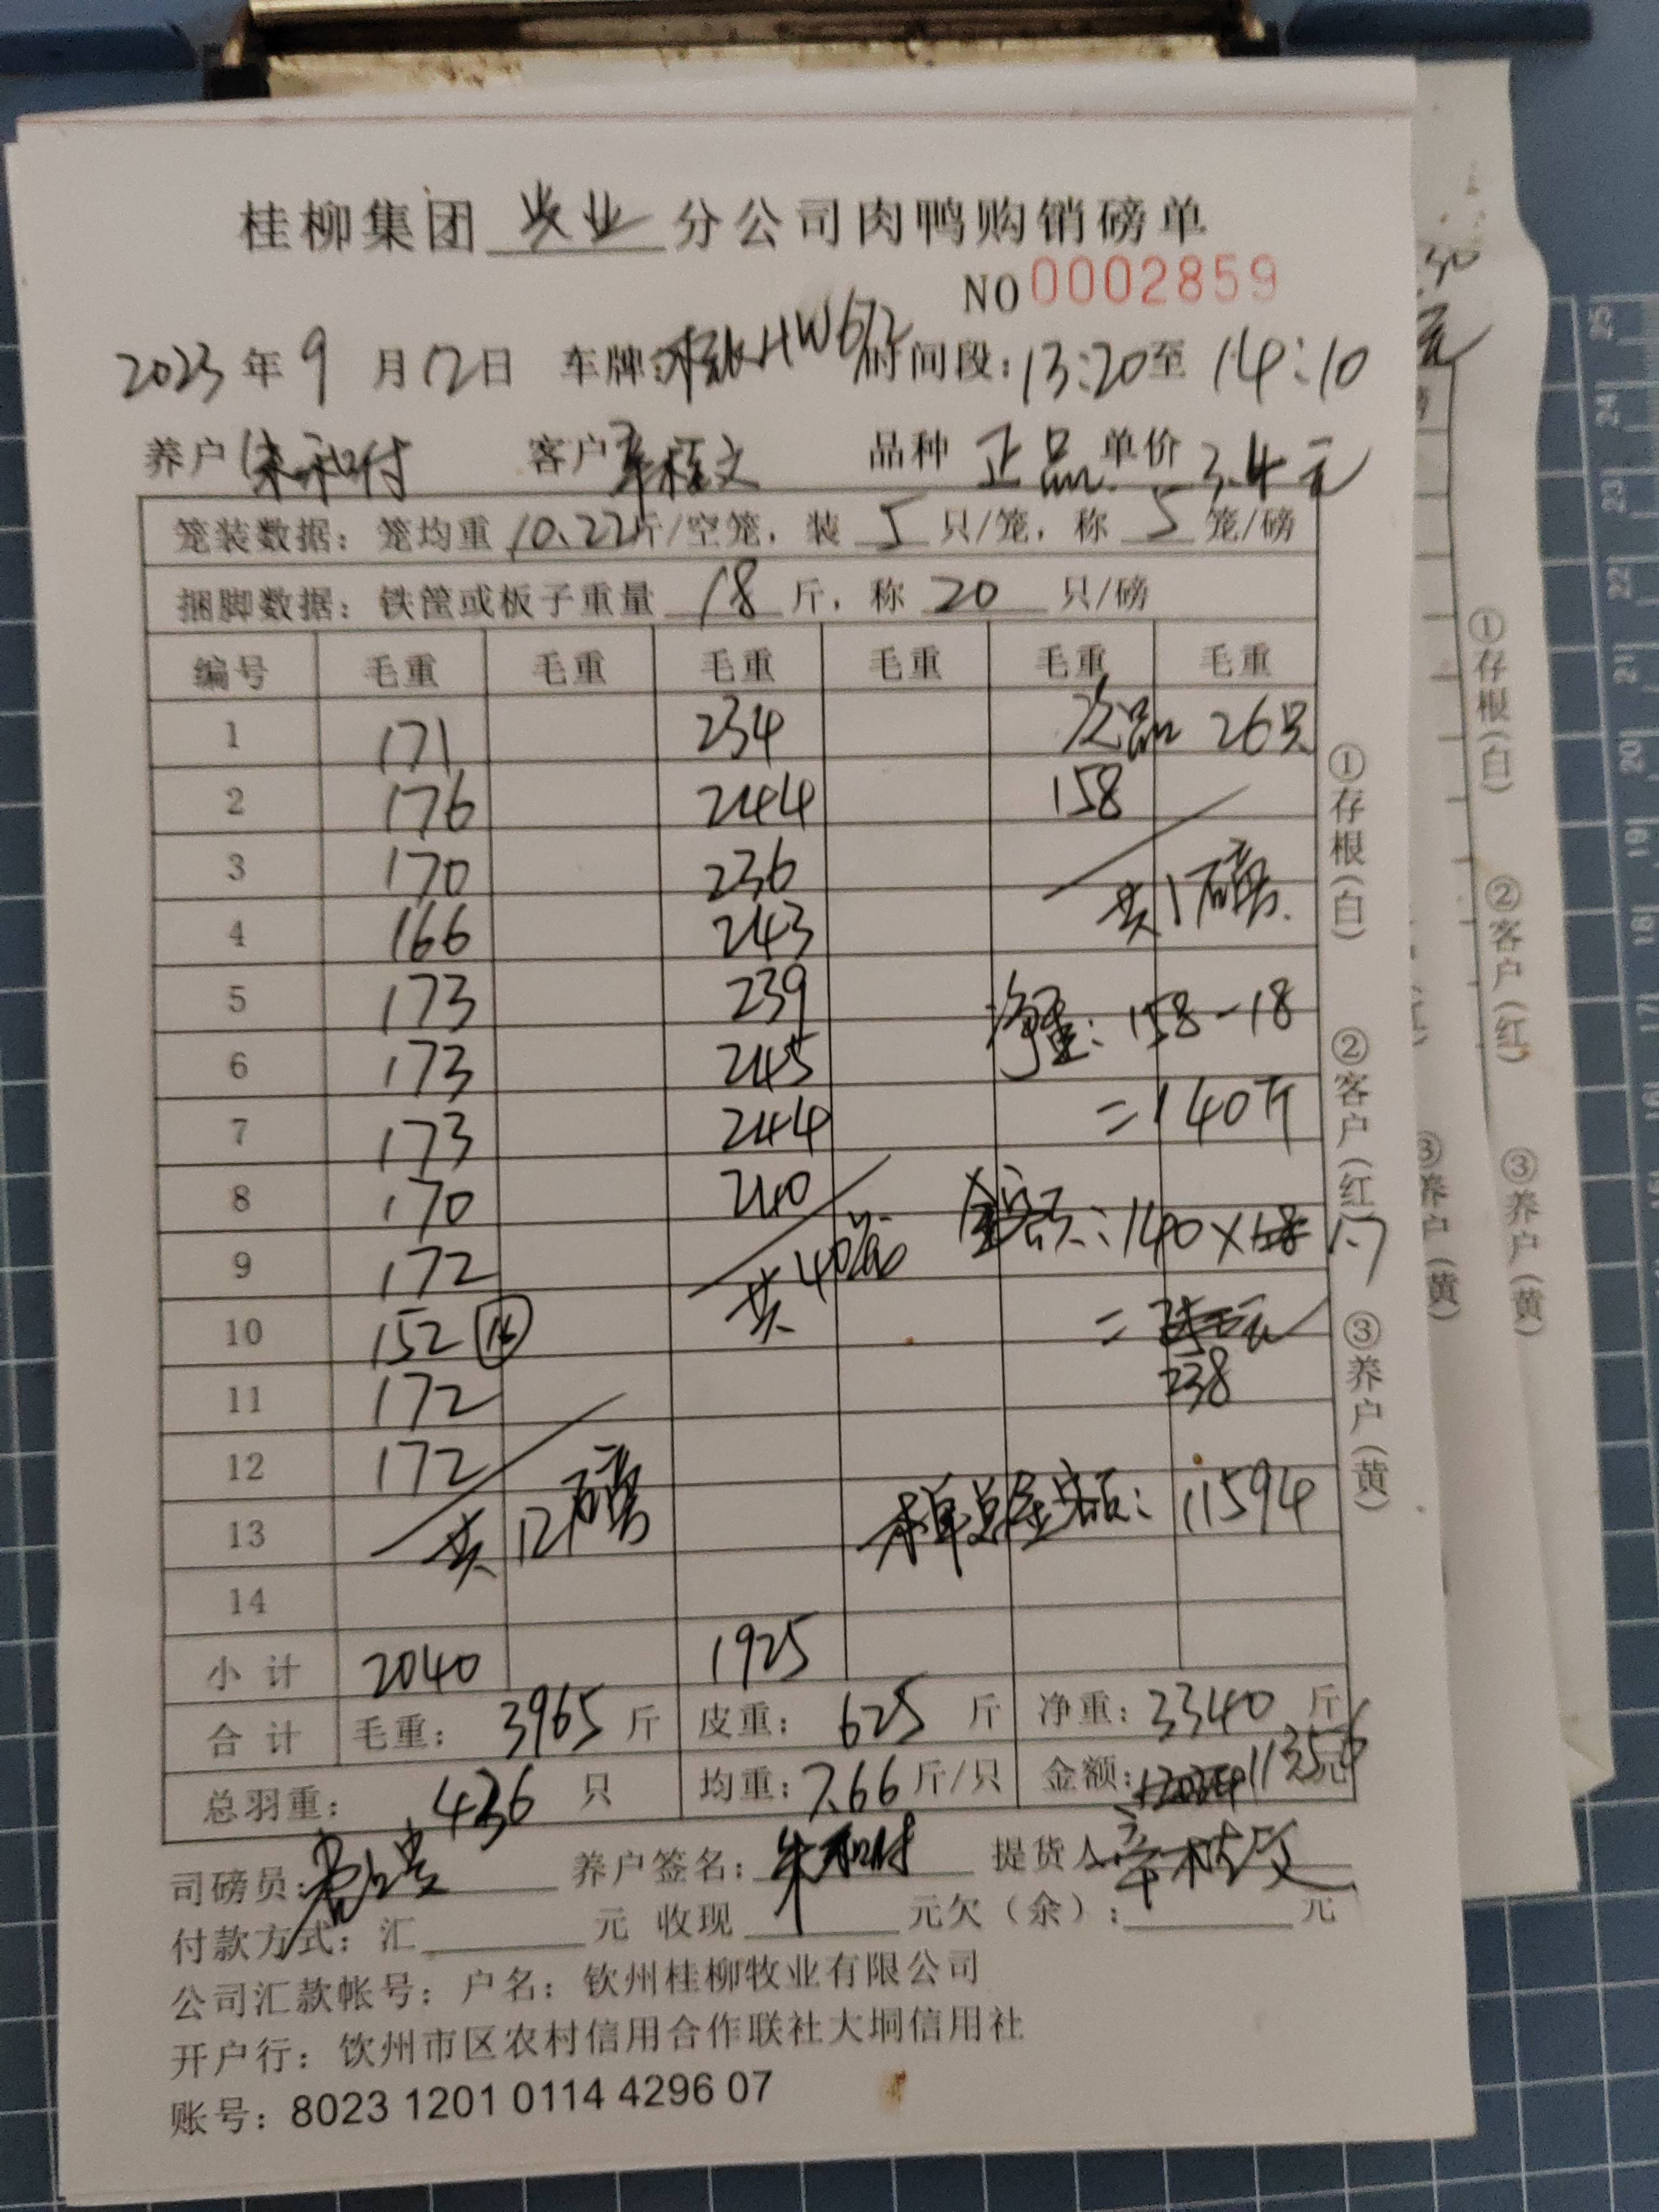 桂柳集团 兴业 分公司肉鸭购销磅单
NO 0002859
2023年9月12日 车牌: HW672 时间段:13:20至14:10
养户 朱和付 客户 覃桂文 品种 正品 单价 3.4元
笼装数据:笼均重 10.22斤/空笼,装 5 只/笼,称 5 笼/磅
捆脚数据:铁筐或板子重量 18 斤,称 20 只/磅
编号 毛重 毛重 毛重 毛重 毛重 毛重
1 171 234 次品 26只
2 176 244 158
3 170 236 共1磅
4 166 243
5 173 239 净重:158-18
6 173 245
7 173 244 =140斤
8 170 240
9 172 共40笼 金额:140× 1.7
10 152 16 =
11 172 238
12 172
13 共12磅 本单总金额:11594
14
小计 2040 1925
合计 毛重:3965斤 皮重:625斤 净重:3340斤
总羽重:436只 均重:7.66斤/只 金额:11356元
司磅员: 养户签名:朱和付 提货人:覃桂文
付款方式:汇 元 收现 元欠(余): 元
公司汇款帐号:户名:钦州桂柳牧业有限公司
开户行:钦州市区农村信用合作联社大垌信用社
账号:8023 1201 0114 4296 07
①存根(白) ②客户(红) ③养户(黄)
①存根(白) ②客户(红) ③养户(黄)